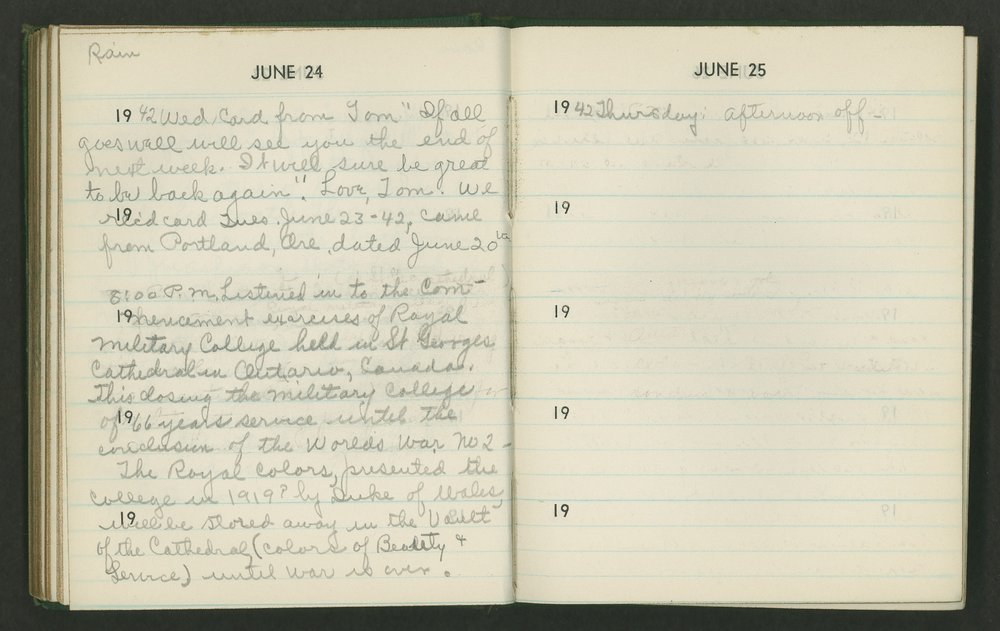 Rain
JUNE 24
19 42 Wed. Card from Tom "If all
goes well will see you the end of
next week. It will sure be great
to be back again". Love, Tom. We
19 rec'd card Tues. June 23-42, came
from Portland, Ore. dated June 20th
8:00 P.M. Listened in to the Com-
19 mencement exercises of Royal
Military College held in St Georges
Cathedral in Ontario, Canada.
This closing the military college
19 of 66 years service until the
conclusion of the Worlds War No 2 -
The Royal colors, presented the
college in 1919? by Duke of Wales,
19 will be stored away in the Vault
of the Cathedral (colors of Beauty &
Service) until war is over.
JUNE 25
19 42 Thursday: afternoon off -
19
19
19
19